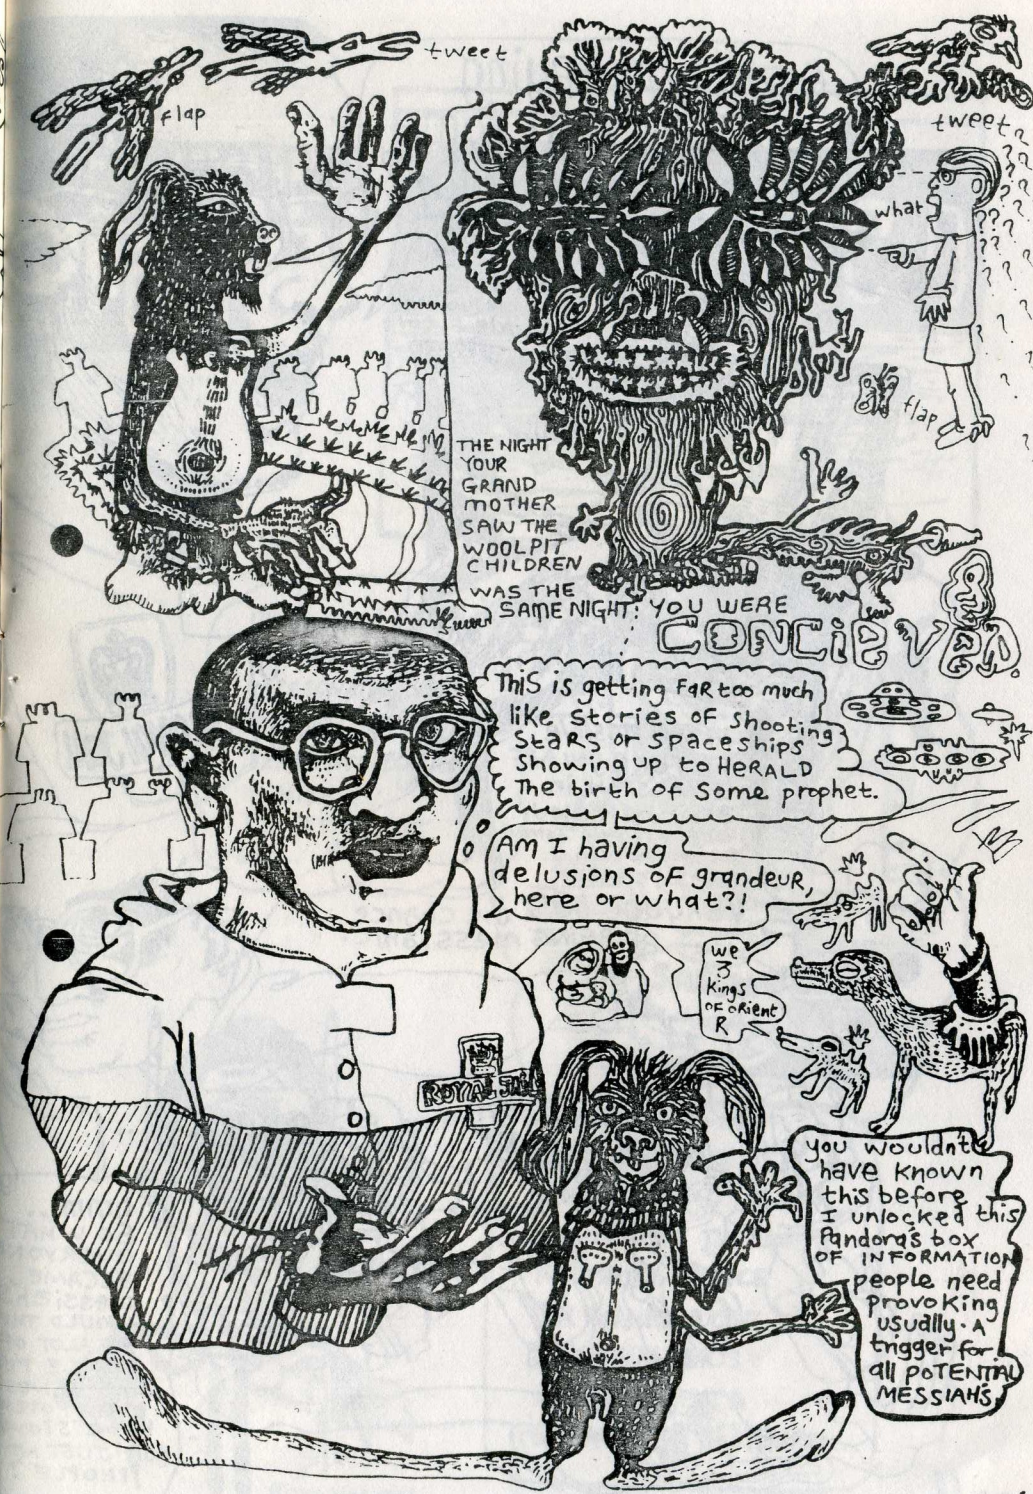 tweet
flap
tweet
what
flap
THE NIGHT
YOUR
GRAND
MOTHER
SAW THE
WOOLPIT
CHILDREN
WAS THE
SAME NIGHT: YOU WERE
CONCIEVED.
ThiS is getting FaR too much
like Stories OF Shooting
StaRS or Spaceships
Showing up to HeRALD
The birth of Some prophet.
Am I having
delusions OF grandeuR,
here or what?!
we
3
kings
OF ORient
R
ROYAL
you wouldnt
have known
this before
I unlocked this
Pandora's box
OF INFORMATION
people need
provoking
usually. A
trigger for
all POTENTIAL
MESSIAH'S